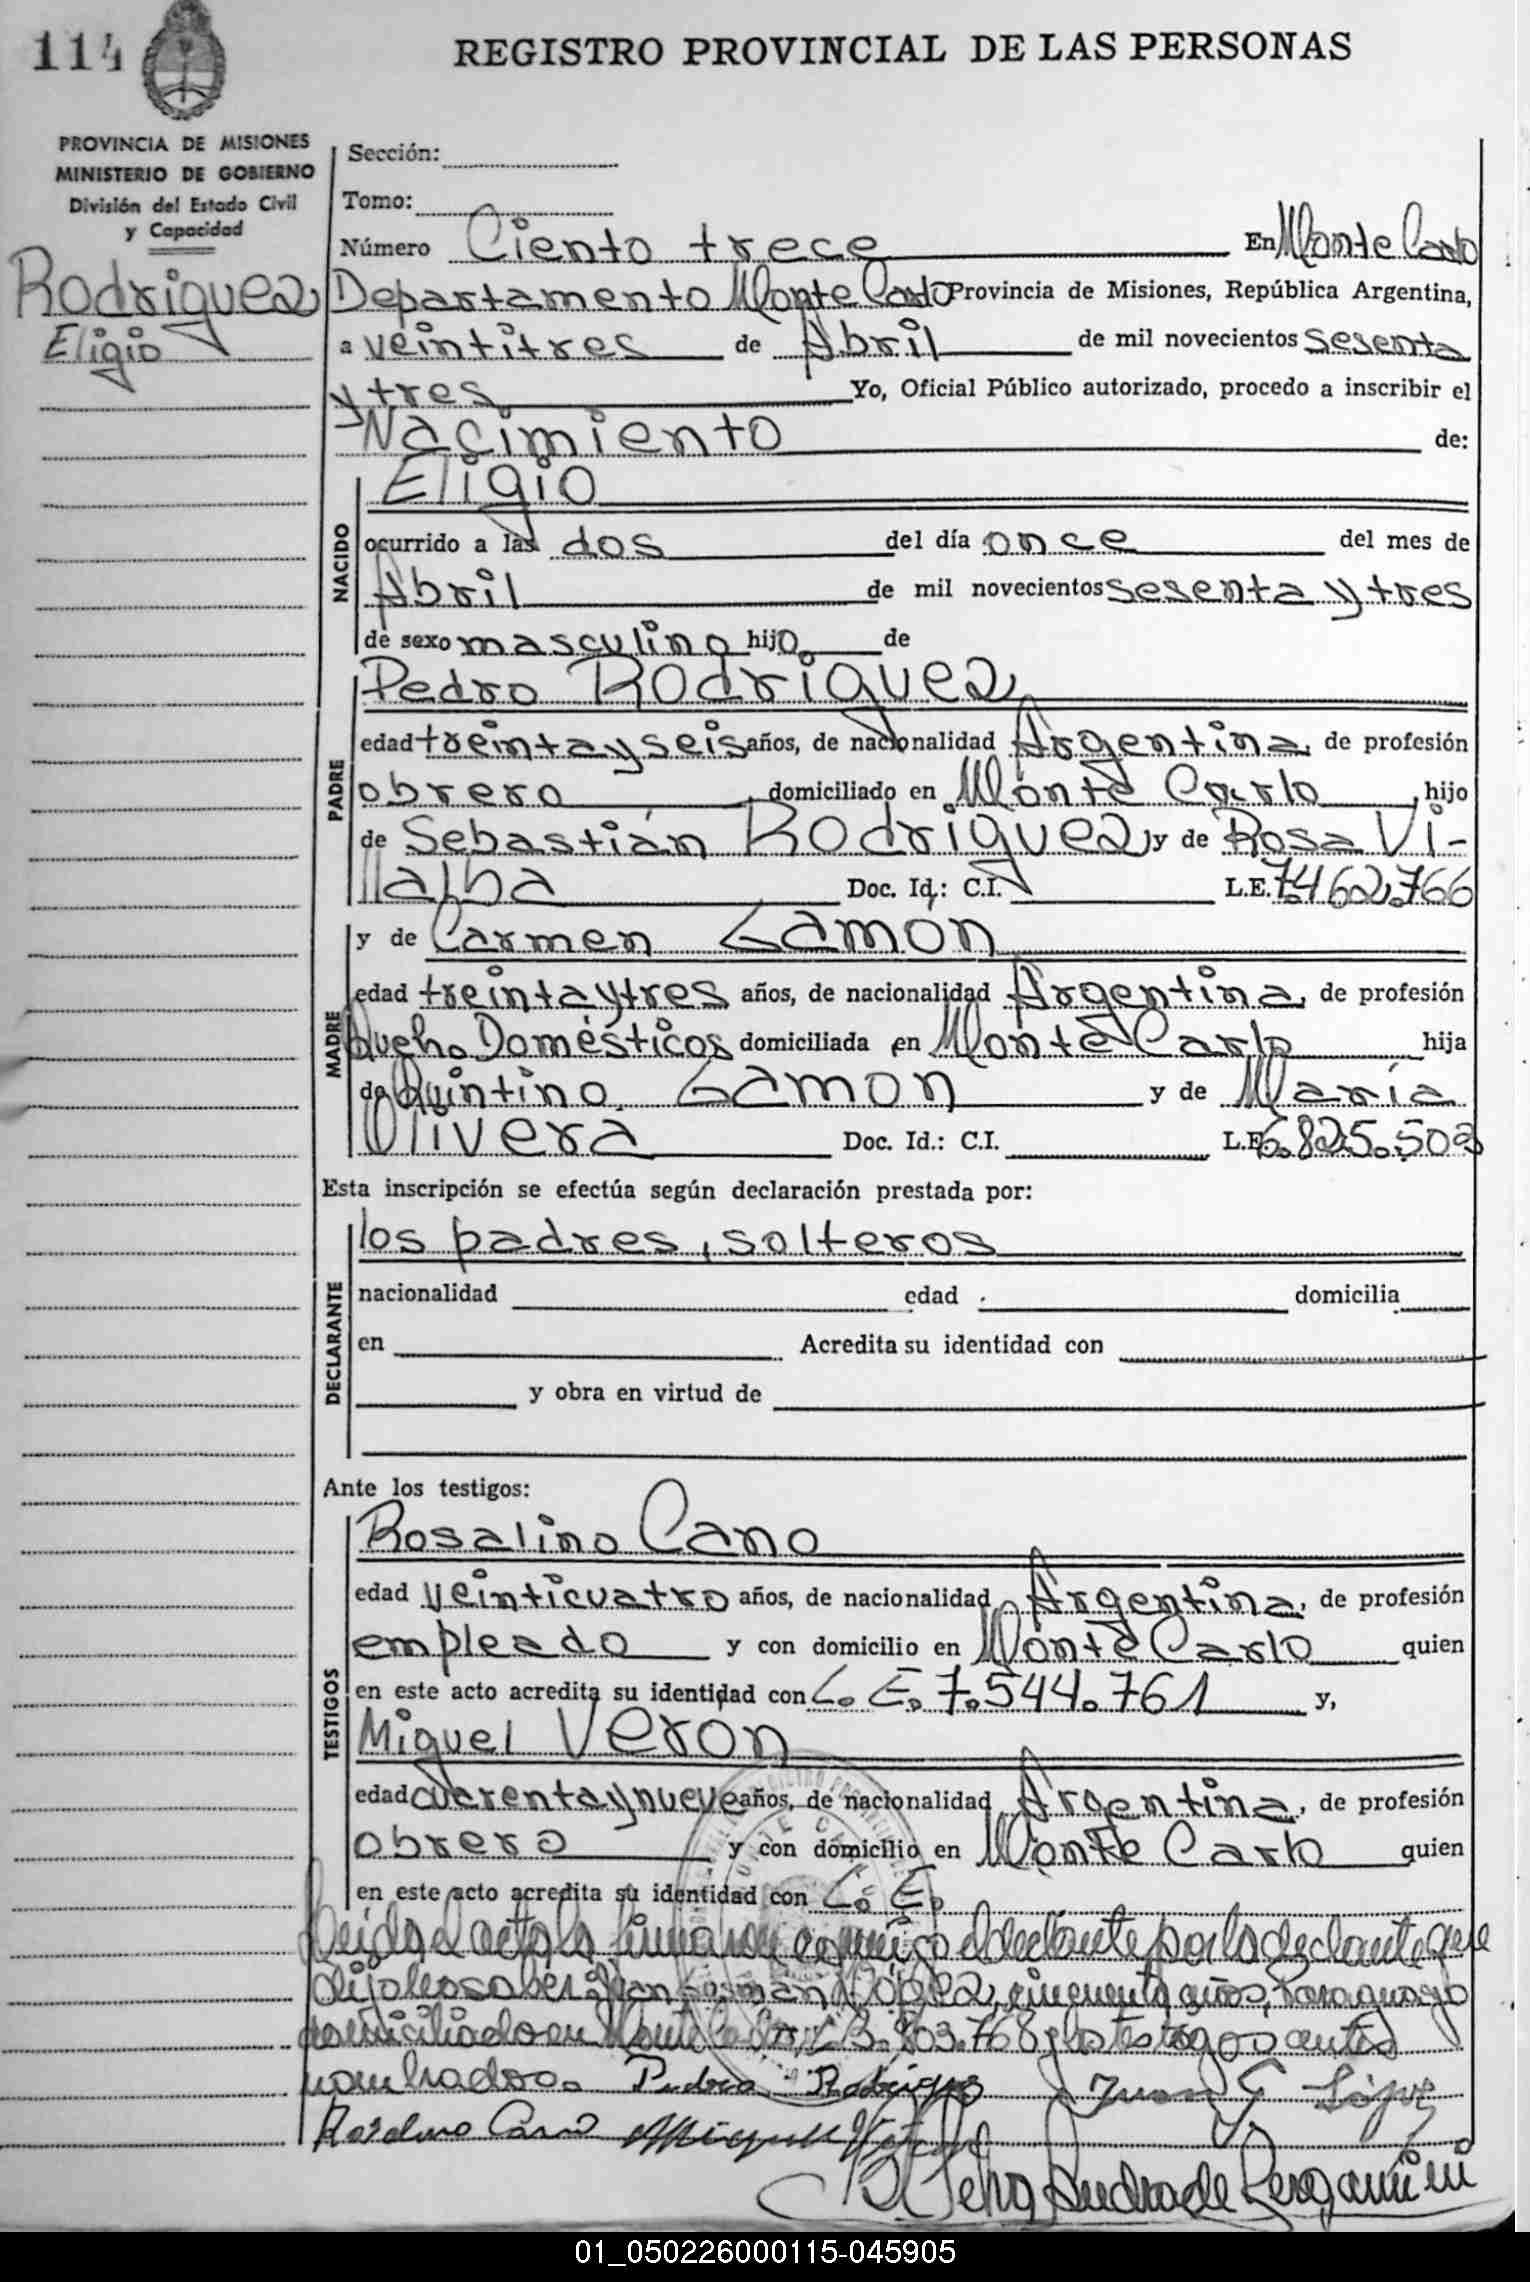 114
REGISTRO PROVINCIAL DE LAS PERSONAS
PROVINCIA DE MISIONES
MINISTERIO DE GOBIERNO
División del Estado Civil
y Capacidad
Rodriguez
Eligio
Sección:
Tomo:
Número Ciento trece En Monte Carlo
Departamento Monte Carlo Provincia de Misiones, República Argentina,
a veintitres de Abril de mil novecientos sesenta
y tres Yo, Oficial Público autorizado, procedo a inscribir el
Nacimiento de:
NACIDO
Eligio
ocurrido a las dos del día once del mes de
Abril de mil novecientos sesenta y tres
de sexo masculino hijo de
PADRE
Pedro Rodriguez
edad treinta y seis años, de nacionalidad Argentina, de profesión
obrero, domiciliado en Monte Carlo, hijo
de Sebastián Rodriguez y de Rosa Vi-
llalba Doc. Id.: C.I. L.E. 7.462.766
MADRE
y de Carmen Gamón
edad treinta y tres años, de nacionalidad Argentina, de profesión
Queh. Domésticos domiciliada en Monte Carlo hija
de Quintino Gamón y de María
Olivera Doc. Id.: C.I. L.E. 6.825.503
Esta inscripción se efectúa según declaración prestada por:
DECLARANTE
los padres, solteros
nacionalidad edad domicilia
en Acredita su identidad con
y obra en virtud de
Ante los testigos:
TESTIGOS
Rosalino Cano
edad veinticuatro años, de nacionalidad Argentina, de profesión
empleado y con domicilio en Monte Carlo quien
en este acto acredita su identidad con L. E. 7.544.761 y,
Miguel Veron
edad cuarenta y nueve años, de nacionalidad Argentina, de profesión
obrero y con domicilio en Monte Carlo quien
en este acto acredita su identidad con L. E.
Leida el acta la firman conmigo el declarante por la declarante que
dijo no saber: Juan Germán López, cincuenta años, Paraguayo
domiciliado en Monte Carlo 803.768 y los testigos antes
nombrados. Pedro Rodriguez Juan G López
Rosalino Cano Miguel Verón
Selva Andrade Bergamini
01_050226000115-045905